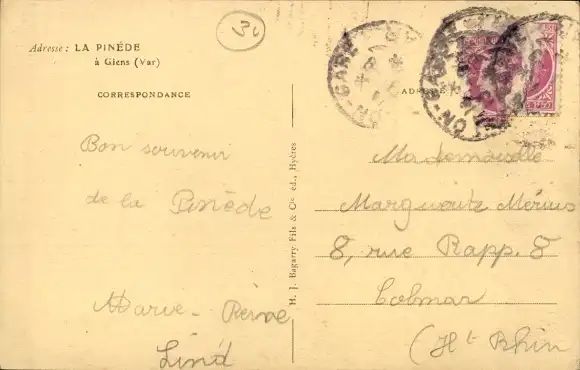 30
Adresse : LA PINÉDE
à Giens (Var)
CORRESPONDANCE
Bon souvenir
de la Pinède
Marie-Reine
Lind
H. J. Bagarry Fils & Cie éd., Hyères
Mademoiselle
Marguerite Mérius
8, rue Rapp. 8
Colmar
(Ht Rhin